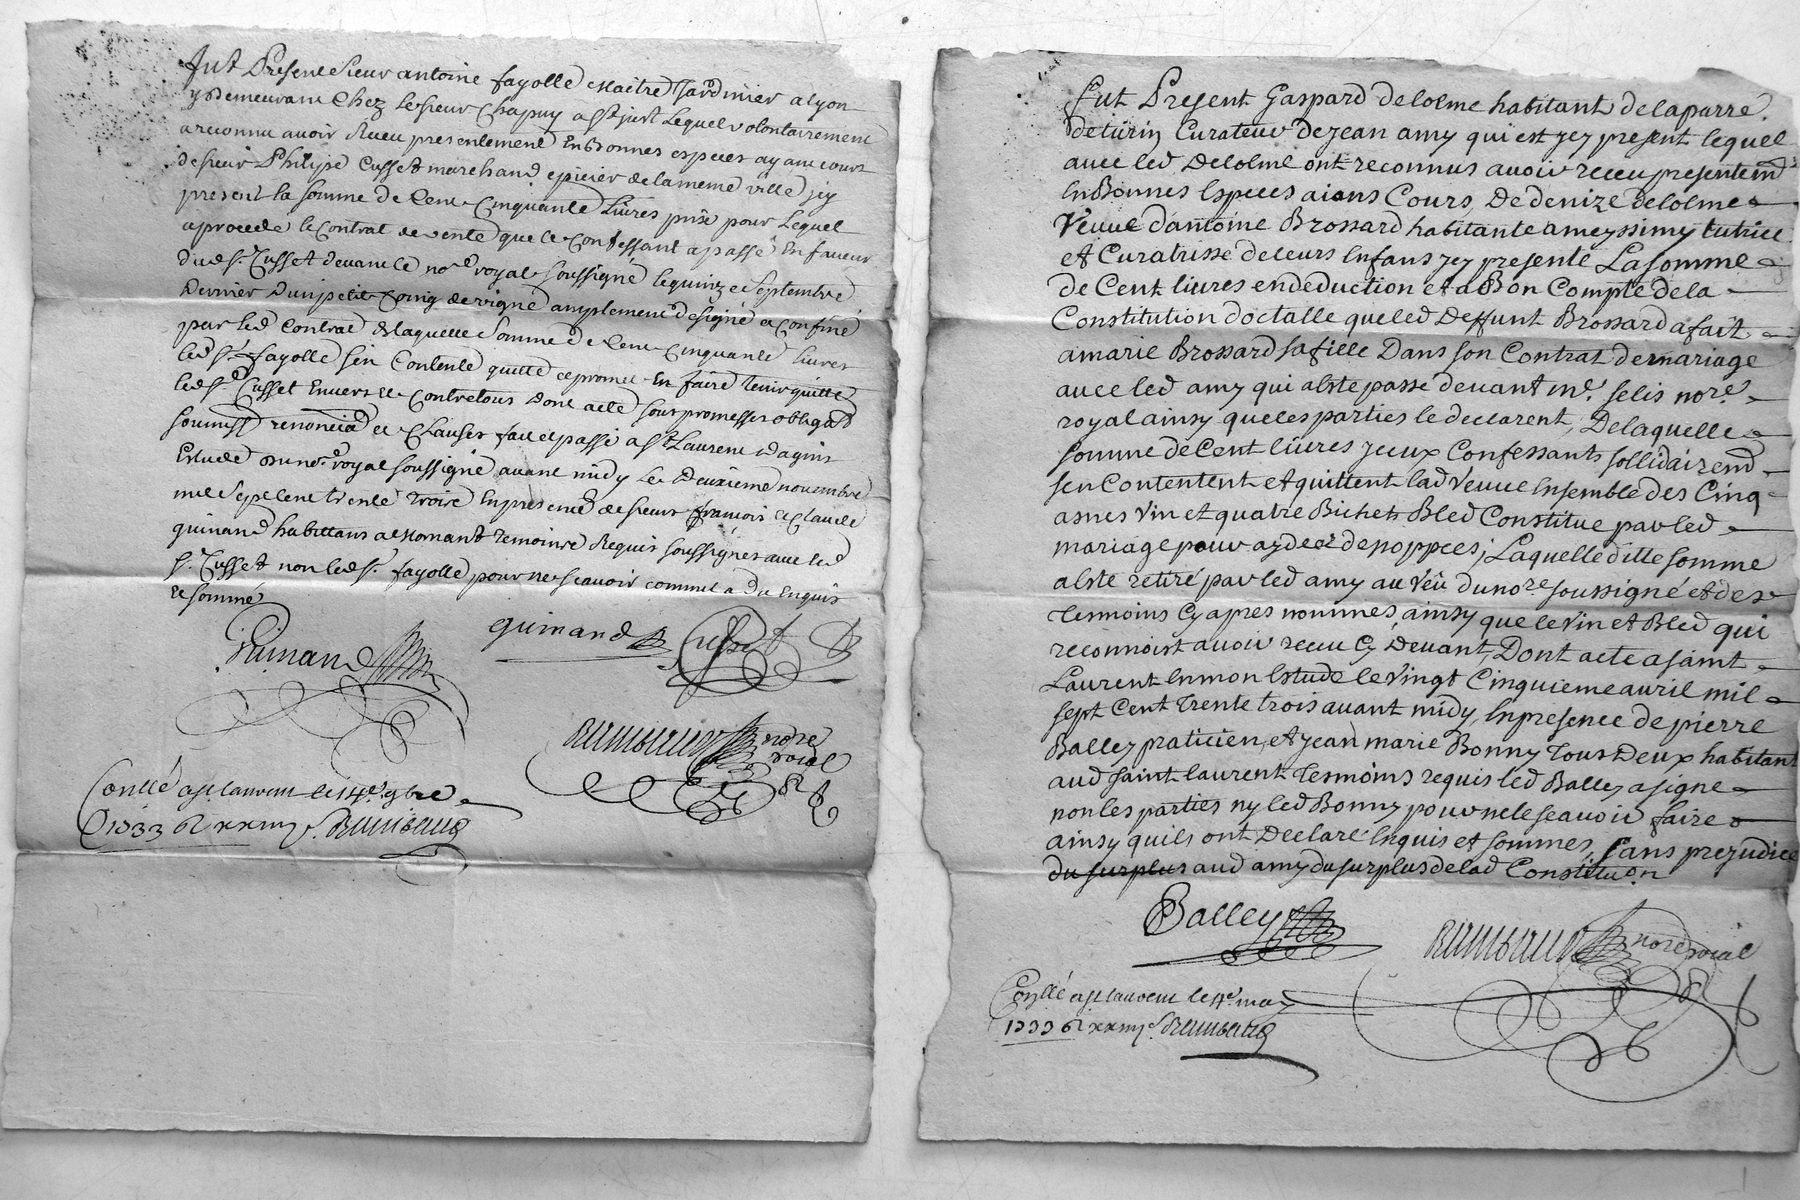 Fut Present Sieur antoine fayolle Maitre Jardinier a lyon
y demeurant Chez le sieur Chapuy a St just Lequel volontairement
a reconnu avoir Receu presentement En Bonnes especes ayant cours
de sieur Philipe Cusset marchand epicier de la meme ville jcy
present la somme de Cent Cinquante Livres prise pour Lequel
a procedé le Contrat de vente que le Confessant a passé En faveur
dud sr. Cusset devant le nore royal soussigné le quinze Septembre
Dernier D'un petit Coing de vigne amplement designé et Confiné
par led Contrat de laquelle Somme de Cent Cinquante livres
led sr. fayolle s'en Contente quitte et promet En faire tenir quitte
led sr. Cusset Envers et Contre tous Dont acte sous promesses obligaon
soumissn renonciaon et Clauses fait et passé a St Laurent dagnis
Estude du nore royal soussigné avant midy Le Deuxieme novembre
mil Sept Cent trente Trois En presence de sieurs francois et Claude
guinand habittans a Temoins Requis soussignés avec led
sr. Cusset non led sr. fayolle pour ne scavoir comme il a dit Enquis
et sommé
Guinand guinand Cusset
Raimbaud nore
roial
Conllé a St laurent le 14e. 9bre
1733 Raimbaud
Fut Present Gaspard delolme habitant de laparre
de turin Curateur de jean amy qui est jcy present lequel
avec led Delolme ont reconnus avoir receu presentemt
En Bonnes Especes aians Cours De denize delolme
Veuve d'antoine Brossard habitante a meyssimy tutrice
et Curatrisse de leurs Enfans jcy presente La somme
de Cent livres en deduction et a Bon Compte de la
Constitution doctalle que led Deffunt Brossard a fait
a marie Brossard sa fille Dans son Contrat de mariage
avec led amy qui a esté passé devant me. selis nore.
royal ainsy que les parties le declarent, De laquelle
somme de Cent livres jceux Confessants sollidairemt
s'en Contentent et quittent lad Veuve Ensemble des Cinq
asnes Vin et quatre Bichets Bled Constitue par led
mariage pour ayder de noppces; Laquelle ditte somme
a esté retiré par led amy au Veu du nore soussigné et des
Tesmoins Cy apres nommés, ainsy que le Vin et Bled qui
reconnoist avoir receu Cy Devant, Dont acte a saint
Laurent En mon Estude le Vingt Cinquieme avril mil
sept Cent Trente trois avant midy, En presence de pierre
Balley praticien, et jean marie Bonny Tous Deux habitant
aud saint laurent Tesmoins requis led Balley a signe
non les parties ny led Bonny pour ne le scavoir faire
ainsy quils ont Declaré Enquis et sommes, sans prejudice
du surplus aud amy du surplus de lad Constituon
Balley Raimbaud nore roial
Conllé a St laurent le 4e. may
1733 Raimbaud